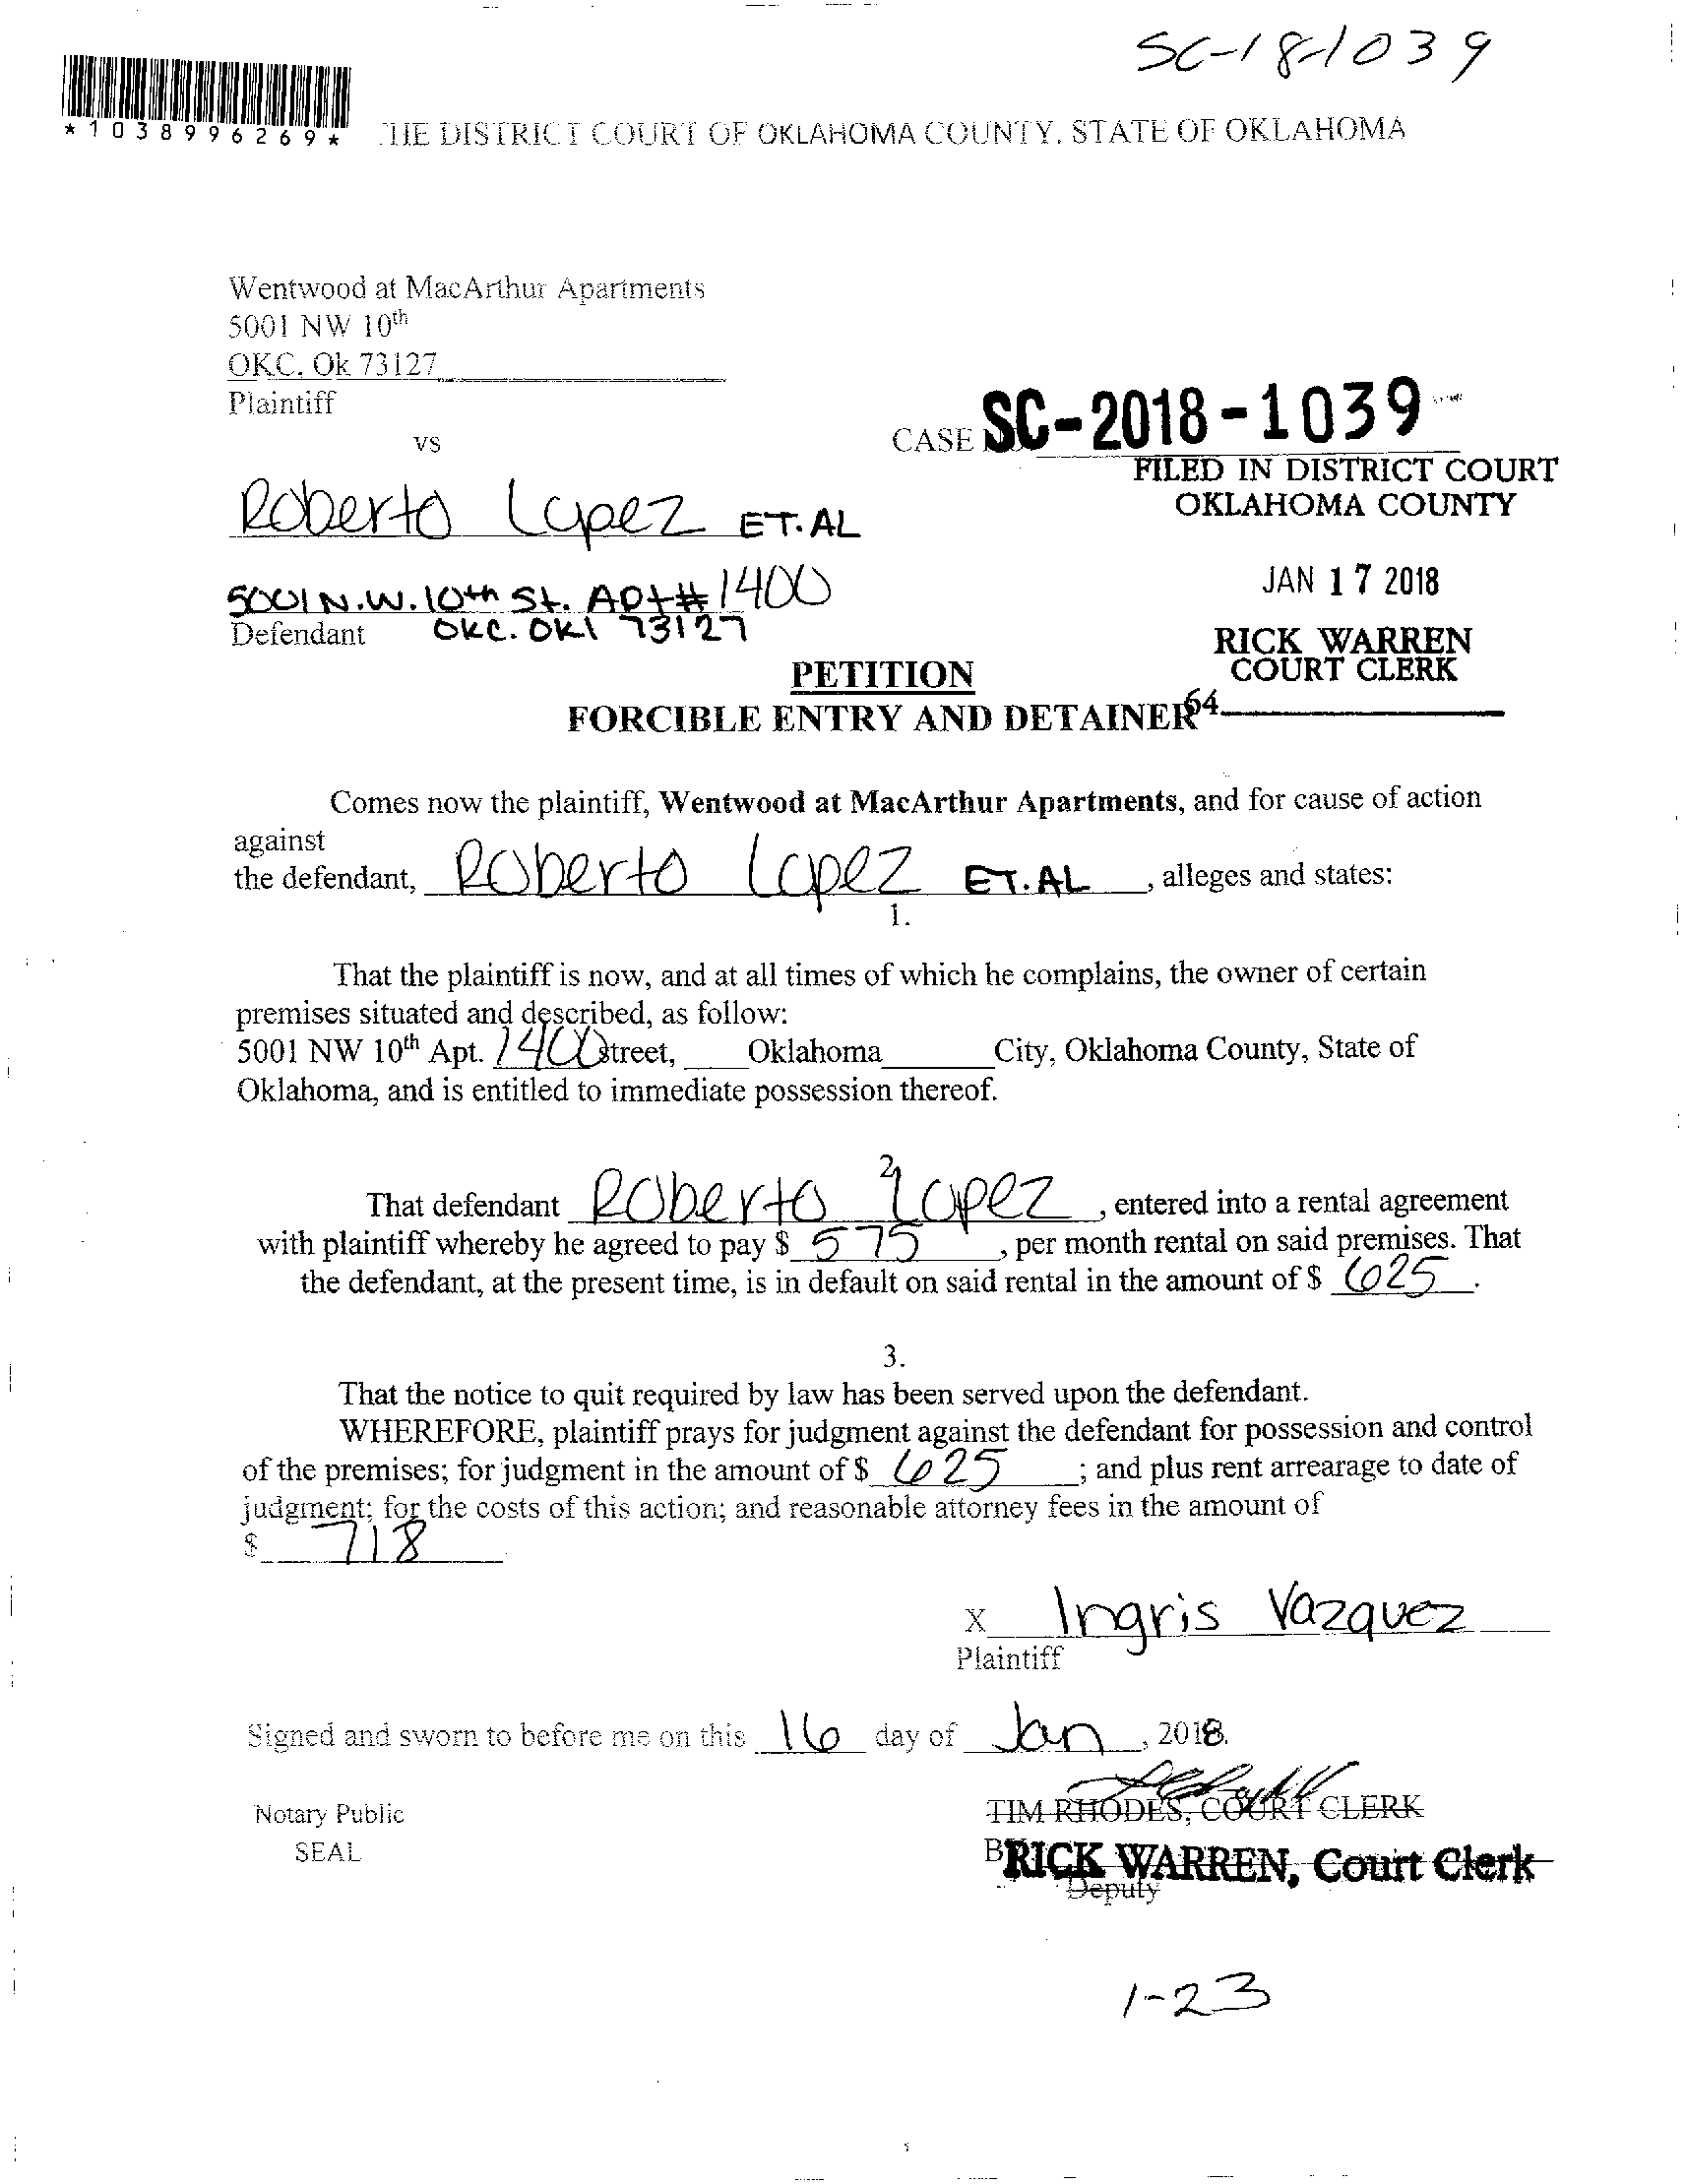 SC-18-1039
*1038996269*
THE DISTRICT COURT OF OKLAHOMA COUNTY, STATE OF OKLAHOMA
Wentwood at MacArthur Apartments
5001 NW 10th
OKC, Ok 73127
Plaintiff
vs
CASE SC-2018-1039
FILED IN DISTRICT COURT
OKLAHOMA COUNTY
Roberto Lopez ET. AL
JAN 17 2018
5001 N.W. 10th St. Apt# 1400
Defendant OKC. OKl 73127
RICK WARREN
COURT CLERK
PETITION
FORCIBLE ENTRY AND DETAINER
64
Comes now the plaintiff, Wentwood at MacArthur Apartments, and for cause of action
against
the defendant, Roberto Lopez ET. AL, alleges and states:
1.
That the plaintiff is now, and at all times of which he complains, the owner of certain
premises situated and described, as follow:
5001 NW 10th Apt. 1400 Street, Oklahoma City, Oklahoma County, State of
Oklahoma, and is entitled to immediate possession thereof.
2.
That defendant Roberto Lopez, entered into a rental agreement
with plaintiff whereby he agreed to pay $ 575, per month rental on said premises. That
the defendant, at the present time, is in default on said rental in the amount of $ 625.
3.
That the notice to quit required by law has been served upon the defendant.
WHEREFORE, plaintiff prays for judgment against the defendant for possession and control
of the premises; for judgment in the amount of $ 625; and plus rent arrearage to date of
judgment; for the costs of this action; and reasonable attorney fees in the amount of
$ 718
X Ingris Vazquez
Plaintiff
Signed and sworn to before me on this 16 day of Jan, 2018.
Notary Public
TIM RHODES, COURT CLERK
SEAL
BRICK WARREN, Court Clerk
Deputy
1-23